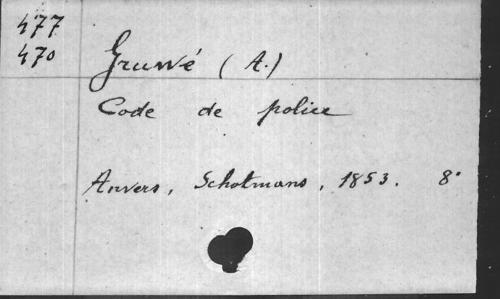 477
470
Gruwé (A.)
Code de police
Anvers, Schotmans, 1853. 8°